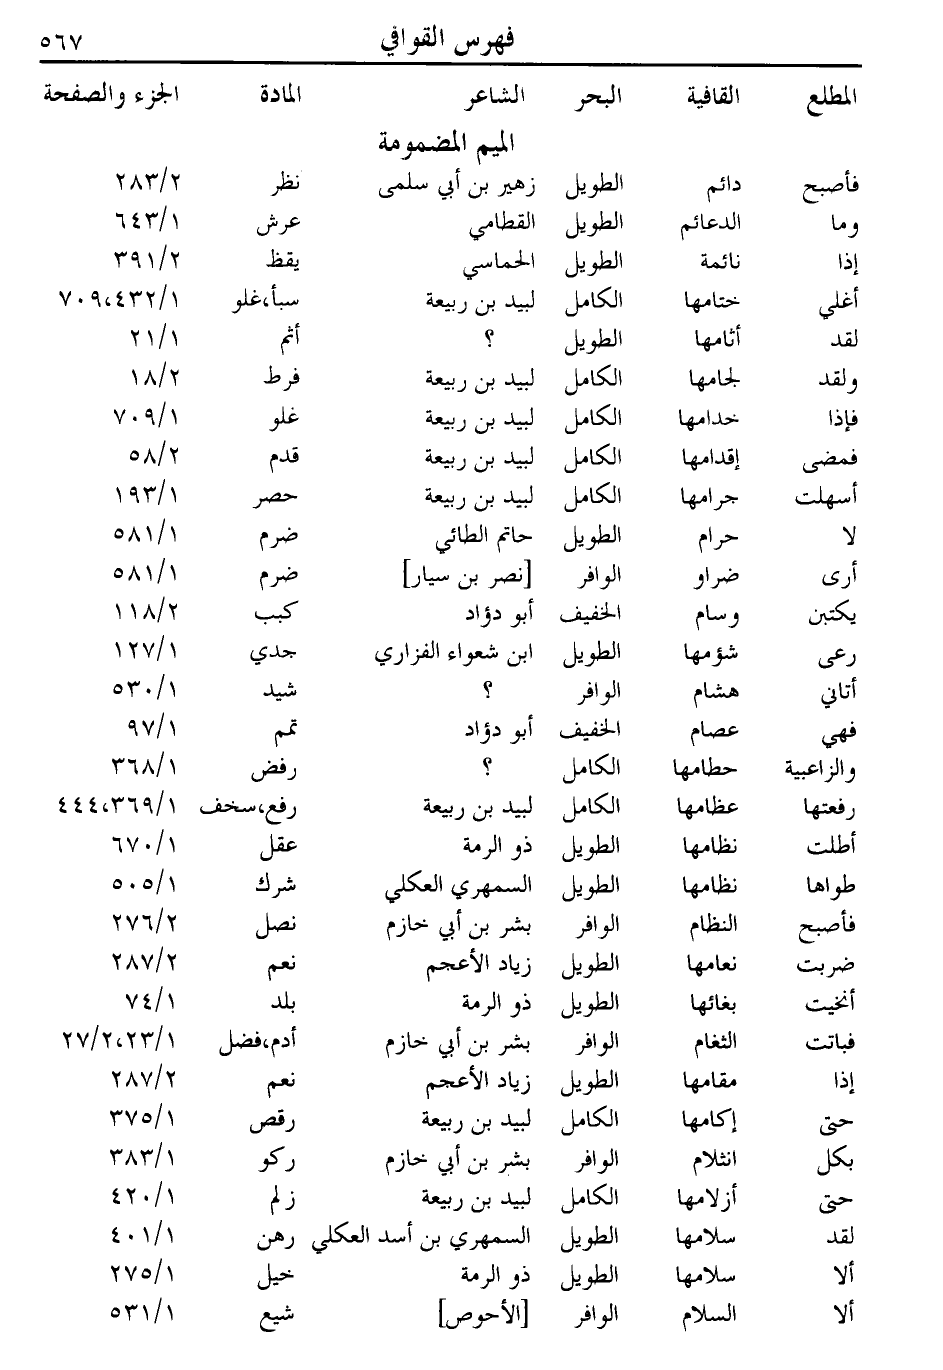 فهرس القوافي ٥٦٧
المطلع القافية البحر الشاعر المادة الجزء والصفحة
الميم المضمومة
فأصبح دائم الطويل زهير بن أبي سلمى نظر ٢٨٣/٢
وما الدعائم الطويل القطامي عرش ٦٤٣/١
إذا نائمة الطويل الحماسي يقظ ٣٩١/٢
أغلي ختامها الكامل لبيد بن ربيعة سبأ،غلو ٧٠٩،٤٣٢/١
لقد أثامها الطويل ؟ أثم ٢١/١
ولقد لجامها الكامل لبيد بن ربيعة فرط ١٨/٢
فإذا خدامها الكامل لبيد بن ربيعة غلو ٧٠٩/١
فمضى إقدامها الكامل لبيد بن ربيعة قدم ٥٨/٢
أسهلت جرامها الكامل لبيد بن ربيعة حصر ١٩٣/١
لا حرام الطويل حاتم الطائي ضرم ٥٨١/١
أرى ضراو الوافر [نصر بن سيار] ضرم ٥٨١/١
يكتبن وسام الخفيف أبو دؤاد كبب ١١٨/٢
رعى شؤمها الطويل ابن شعواء الفزاري جدي ١٢٧/١
أتاني هشام الوافر ؟ شيد ٥٣٠/١
فهي عصام الخفيف أبو دؤاد تمم ٩٧/١
والزاعبية حطامها الكامل ؟ رفض ٣٦٨/١
رفعتها عظامها الكامل لبيد بن ربيعة رفع،سخف ٤٤٤،٣٦٩/١
أطلت نظامها الطويل ذو الرمة عقل ٦٧٠/١
طواها نظامها الطويل السمهري العكلي شرك ٥٠٥/١
فأصبح النظام الوافر بشر بن أبي خازم نصل ٢٧٦/٢
ضربت نعامها الطويل زياد الأعجم نعم ٢٨٧/٢
أنخيت بغائها الطويل ذو الرمة بلد ٧٤/١
فباتت الثغام الوافر بشر بن أبي خازم أدم،فضل ٢٧/٢،٢٣/١
إذا مقامها الطويل زياد الأعجم نعم ٢٨٧/٢
حتى إكامها الكامل لبيد بن ربيعة رقص ٣٧٥/١
بكل انثلام الوافر بشر بن أبي خازم ركو ٣٨٣/١
حتى أزلامها الكامل لبيد بن ربيعة زلم ٤٢٠/١
لقد سلامها الطويل السمهري بن أسد العكلي رهن ٤٠١/١
ألا سلامها الطويل ذو الرمة خيل ٢٧٥/١
ألا السلام الوافر [الأحوص] شيع ٥٣١/١